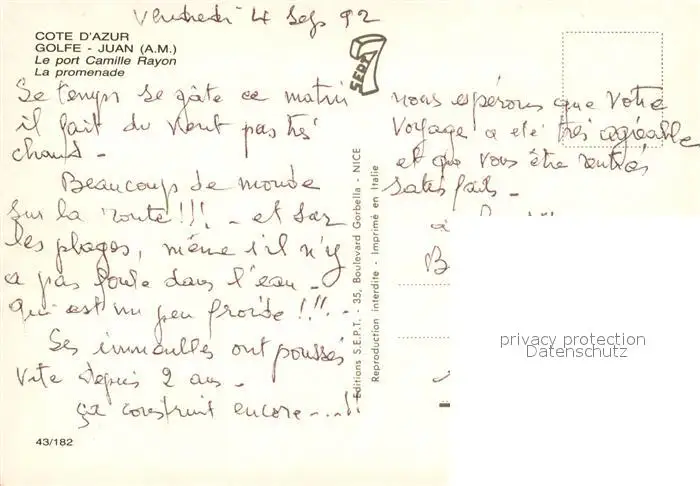 Vendredi 4 Sep 92
COTE D'AZUR
GOLFE - JUAN (A.M.)
Le port Camille Rayon
La promenade
Se temps se gâte ce matin
il fait du vent pas très
chaud -
Beaucoup de monde
sur la route !!! - et sur
les plages, même s'il n'y
a pas foule dans l'eau -
qui est un peu froide !!! -
Ses immeubles ont poussés
vite depuis 2 ans -
ça construit encore ....!!
43/182
SEPT
Editions S.E.P.T. - 35, Boulevard Gorbella - NICE
Reproduction interdite - Imprimé en Italie
nous espérons que votre
voyage a été très agréable
et que vous être rentrés
satisfaits -
à
B
privacy protection
Datenschutz